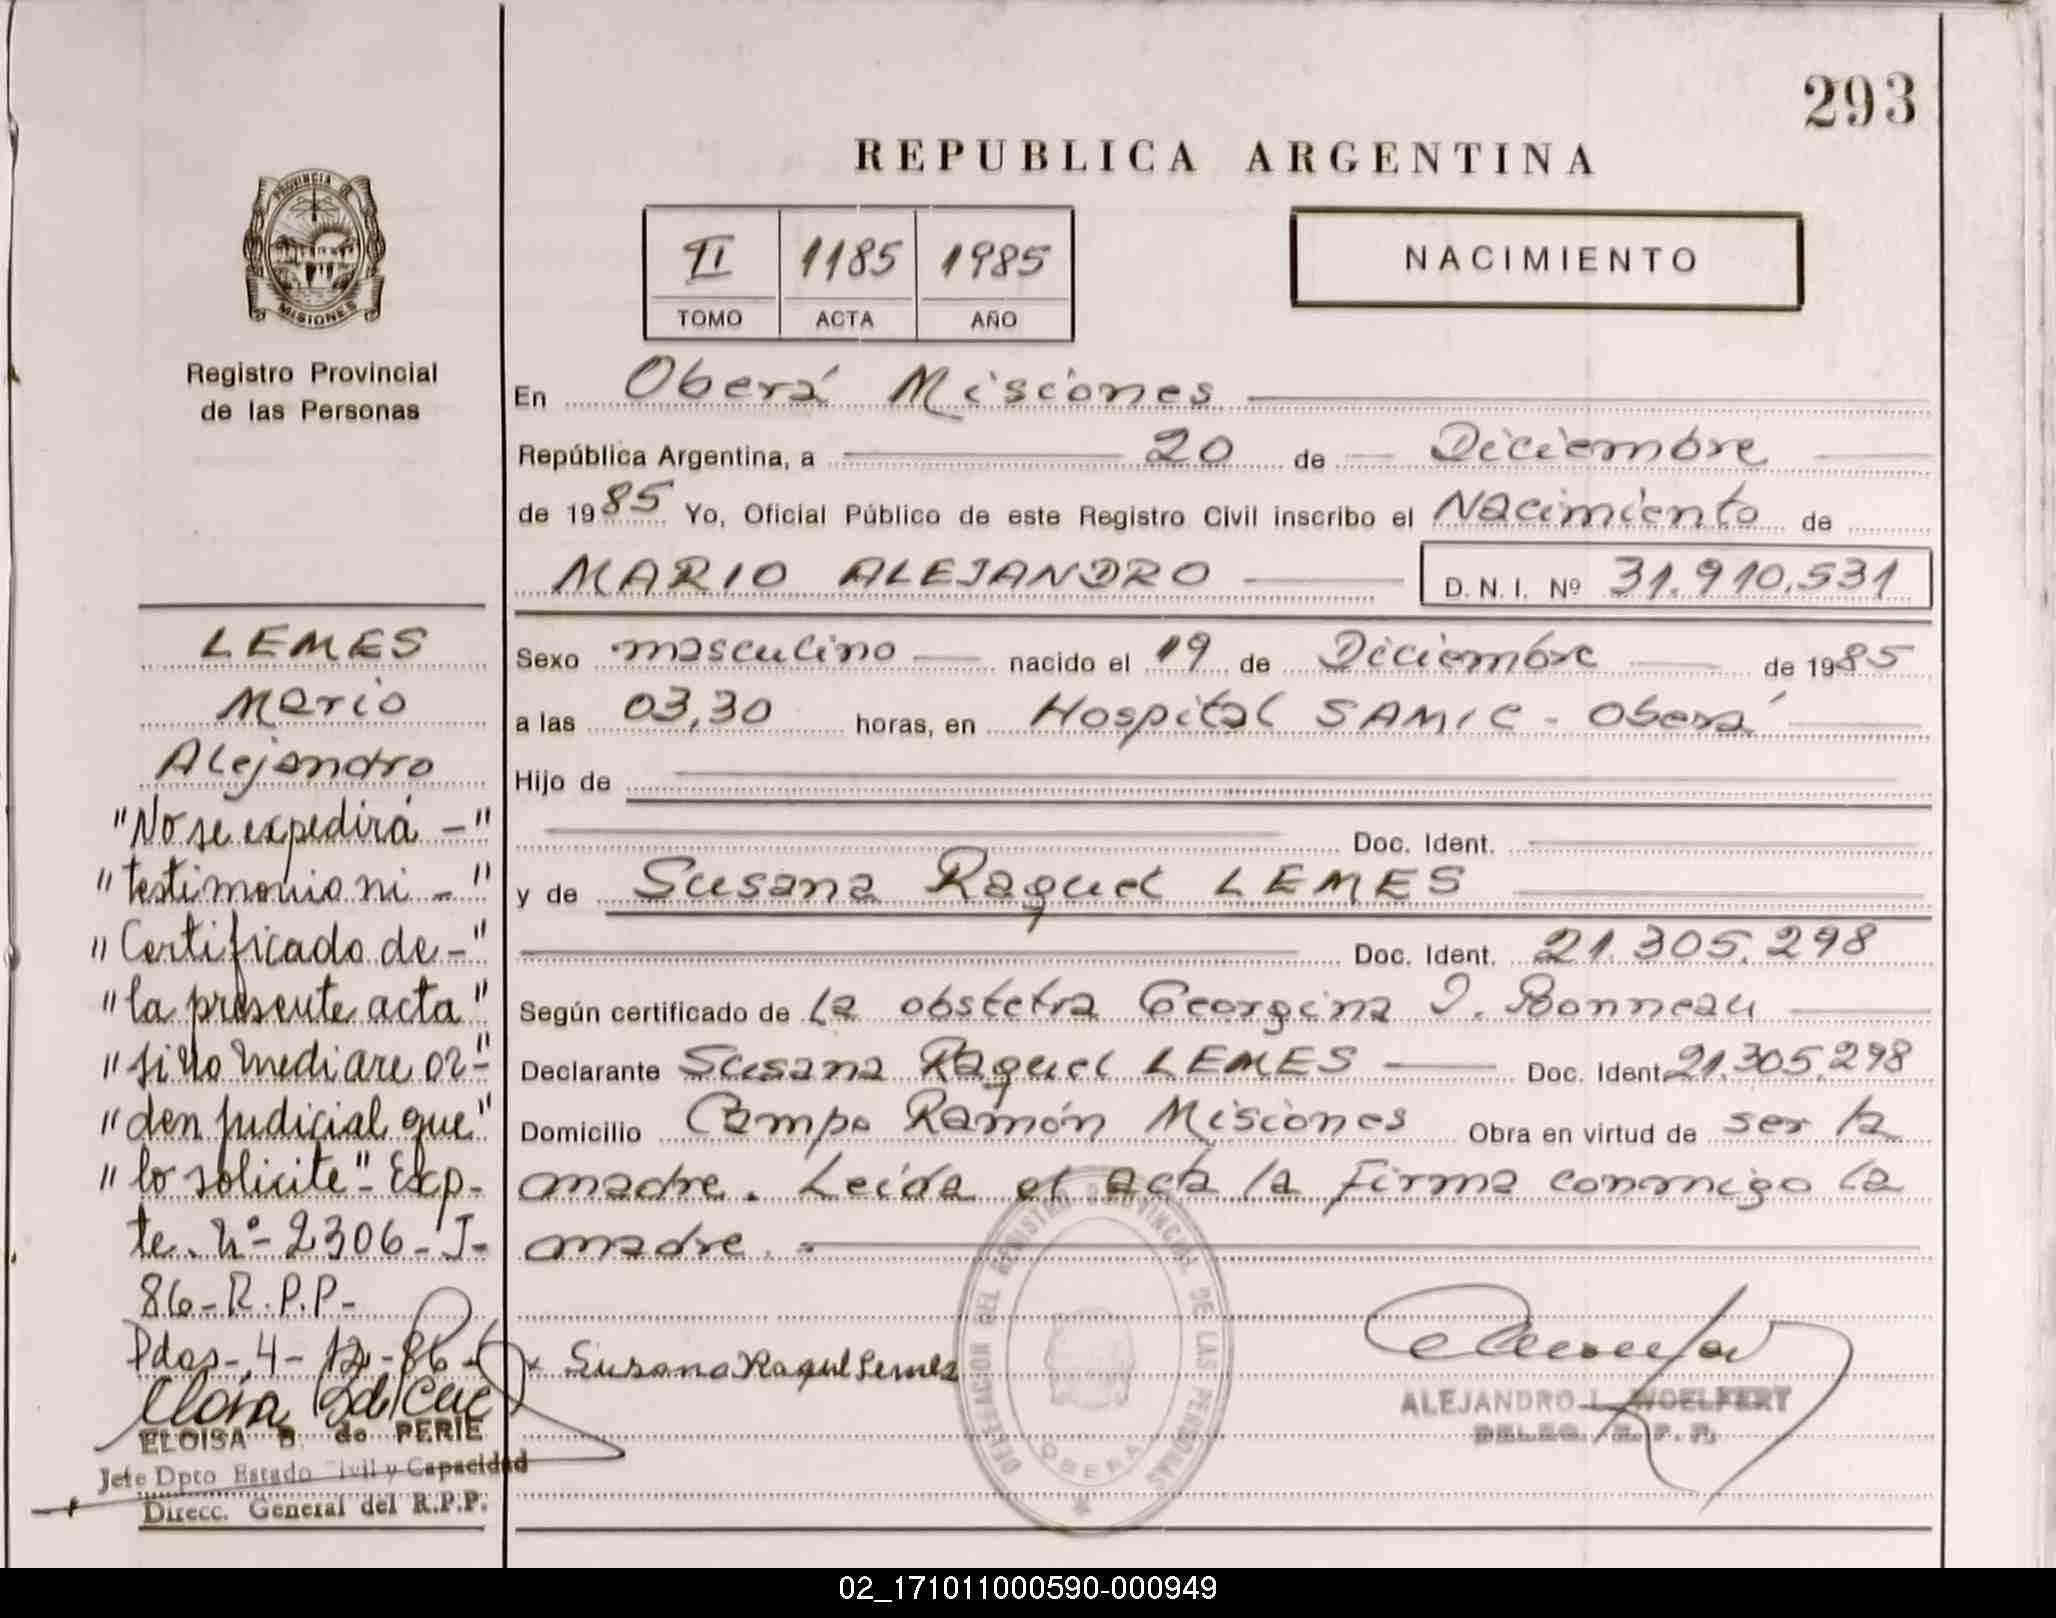 293
REPUBLICA ARGENTINA
PROVINCIA DE
MISIONES
Registro Provincial
de las Personas
II 1185 1985
TOMO ACTA AÑO
NACIMIENTO
En Oberá Misiones
República Argentina, a 20 de Diciembre
de 1985 Yo, Oficial Público de este Registro Civil inscribo el Nacimiento de
MARIO ALEJANDRO D. N. I. Nº 31.910.531
Sexo masculino nacido el 19 de Diciembre de 1985
a las 03,30 horas, en Hospital SAMIC - Oberá
Hijo de
Doc. Ident.
y de Susana Raquel LEMES
Doc. Ident. 21.305.298
Según certificado de la obstetra Georgina I. Bonneau
Declarante Susana Raquel LEMES Doc. Ident. 21.305.298
Domicilio Campo Ramón Misiones Obra en virtud de ser la
madre. Leída el acta la firma conmigo la
madre.
Susana Raquel Lemes
DELEGACION DEL REGISTRO PROVINCIAL DE LAS PERSONAS
OBERA
ALEJANDRO L. WOELFERT
DELEG. R. P. P.
LEMES
Mario
Alejandro
"No se expedirá -"
"testimonio ni -"
"Certificado de -"
"la presente acta"
"si no mediare or-"
"den judicial que"
"lo solicite"- Exp-
te. Nº- 2306- J-
86- R.P.P-
Pdas- 4- 12- 86-
ELOISA B. de PERIE
Jefe Dpto Estado Civil y Capacidad
Direcc. General del R.P.P.
02_171011000590-000949